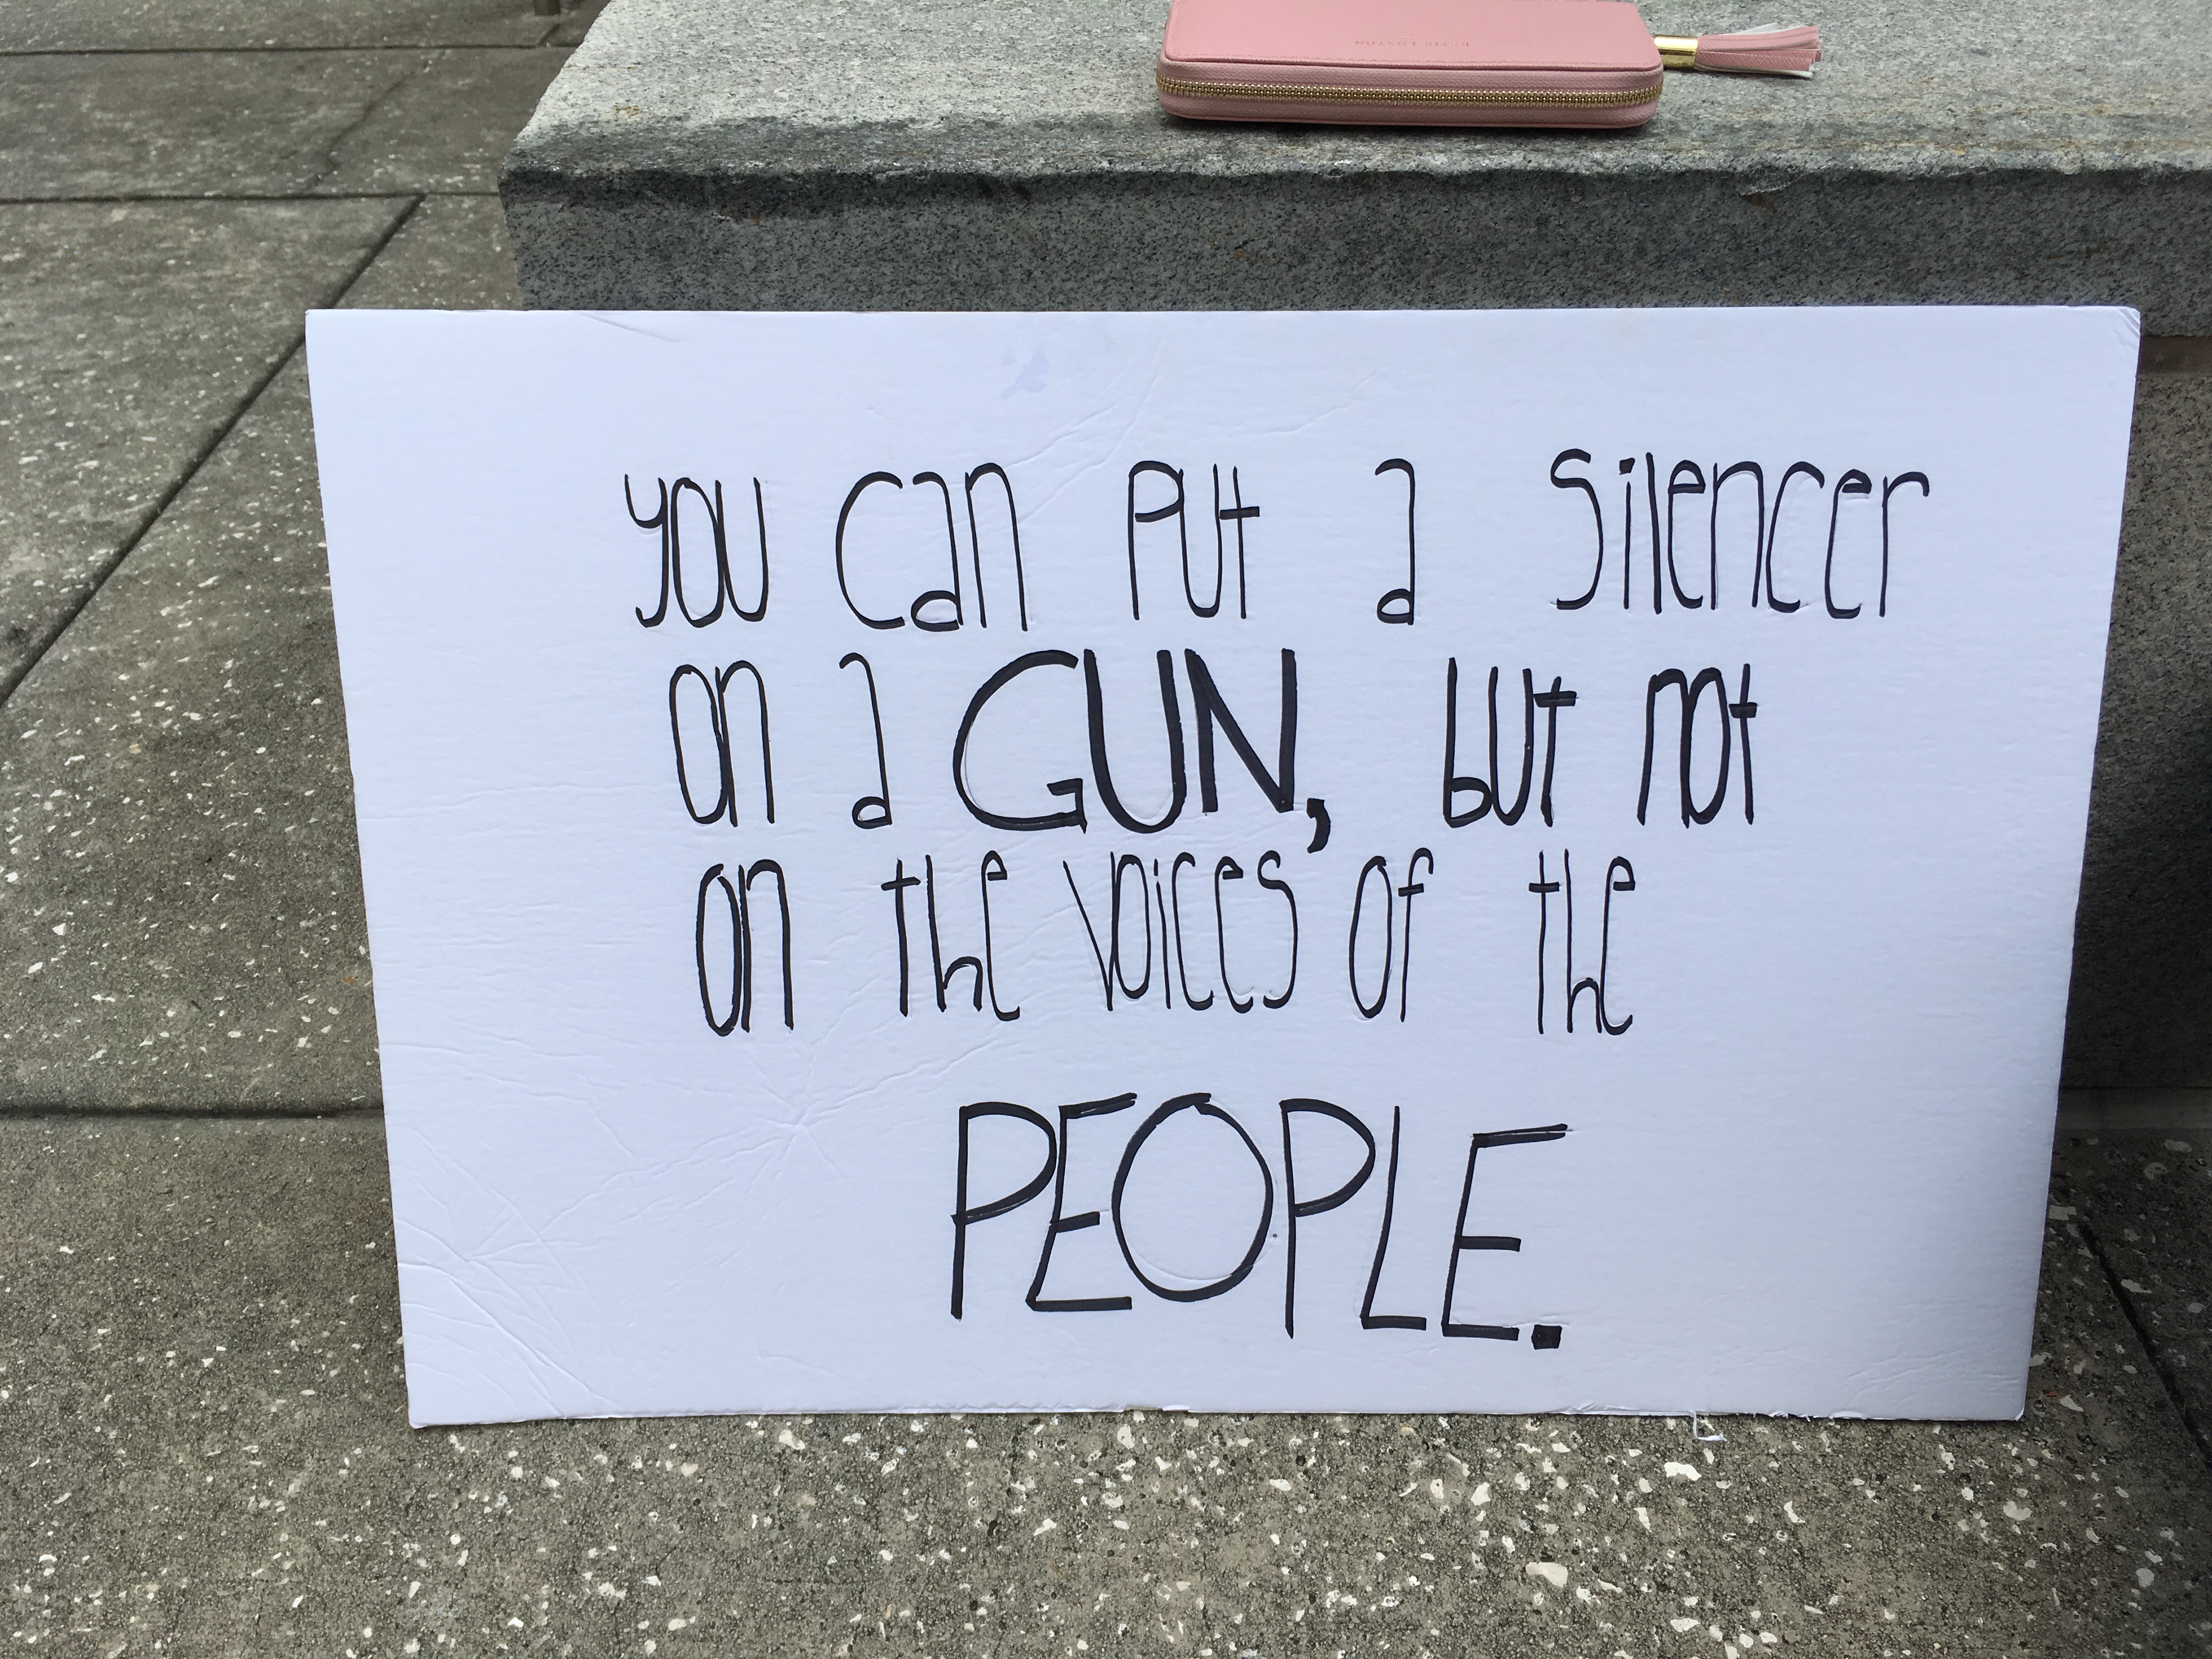 you can put a silencer
on a GUN, but not
on the voices of the
PEOPLE.